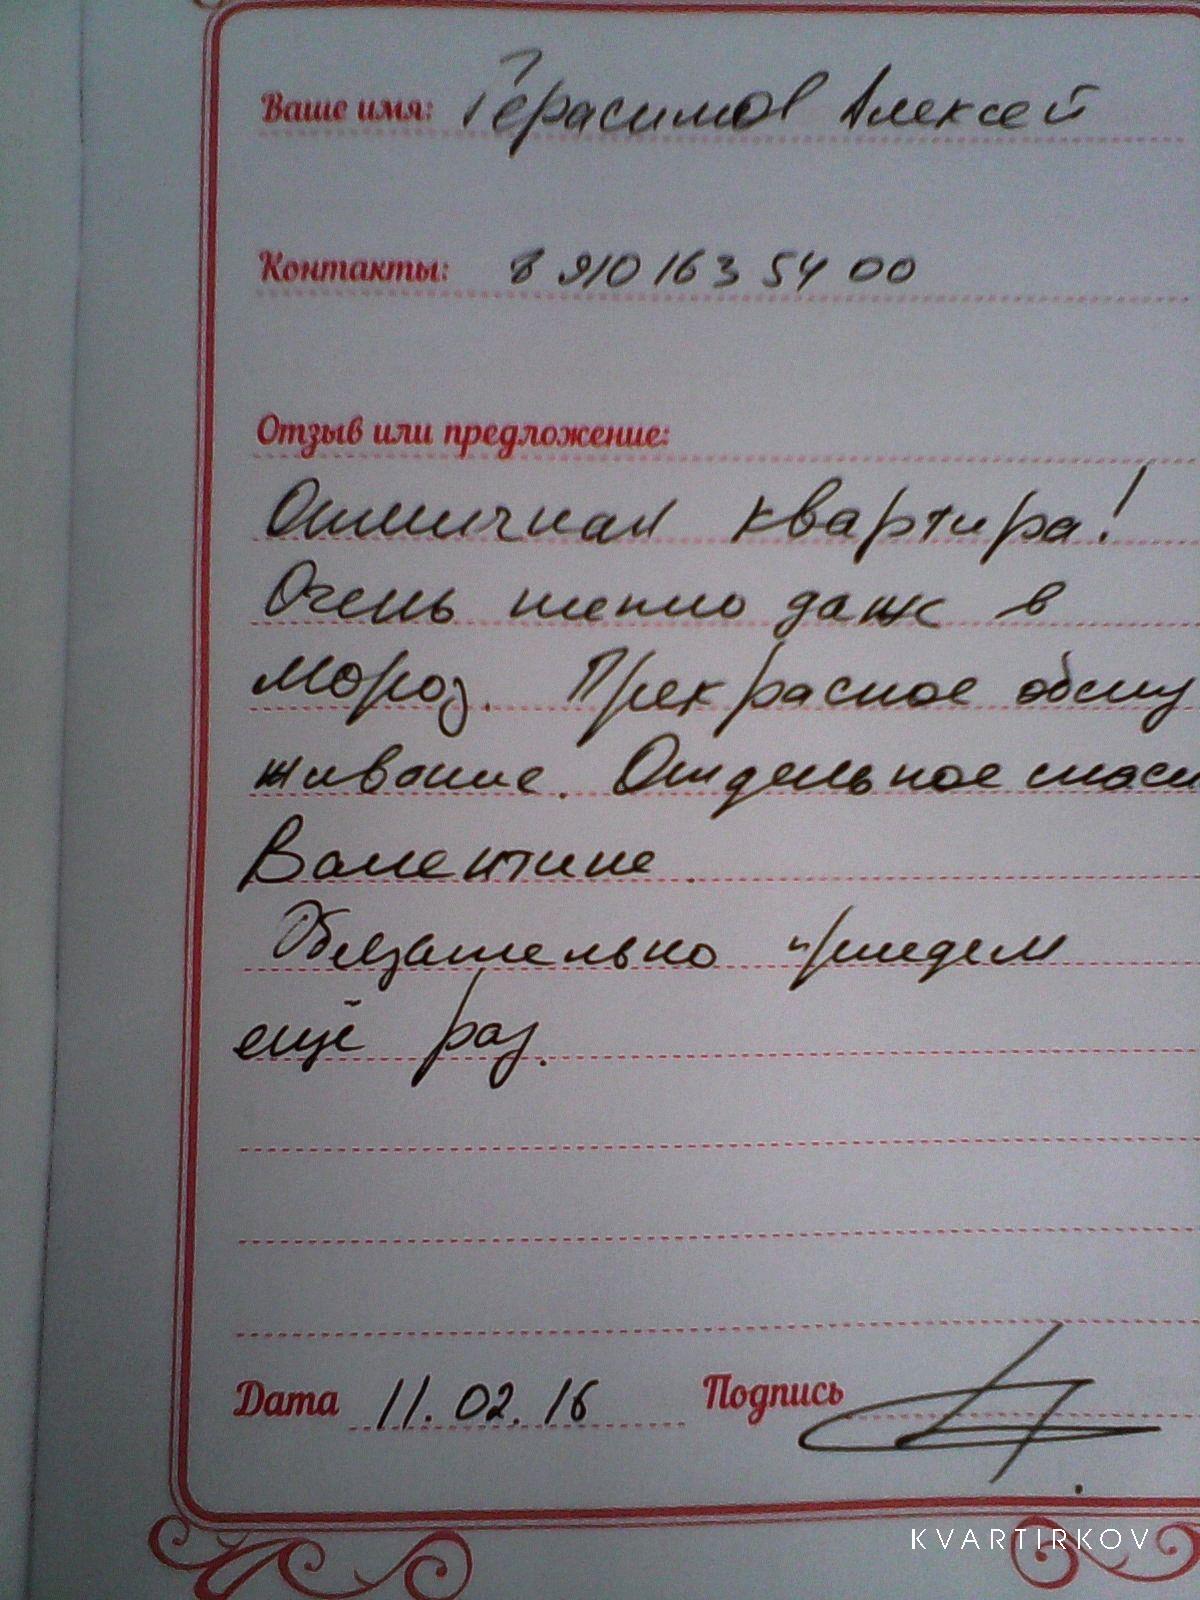 Ваше имя: Герасимов Алексей
Контакты: 8 910 163 54 00
Отзыв или предложение:
Отличная квартира!
Очень тепло даже в
мороз. Прекрасное обслу
живание. Отдельное спаси
Валентине.
Обязательно приедем
ещё раз.
Дата 11.02.16 Подпись
KVARTIRKOV